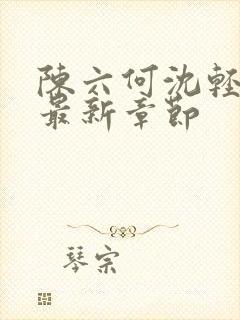 陳六何沈輕
最新章節
琴宗